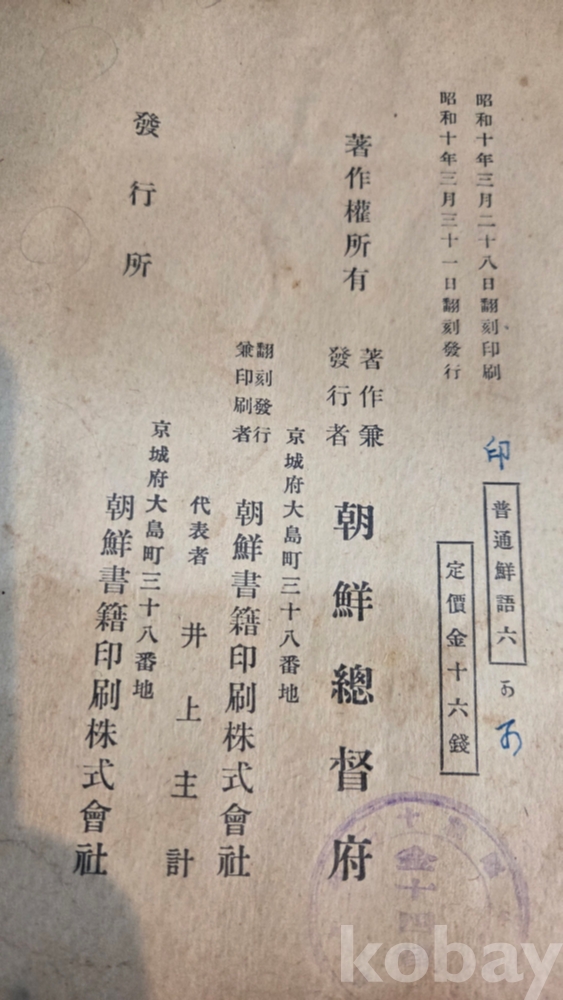 昭和十年三月二十八日翻刻印刷
昭和十年三月三十一日翻刻發行
印
普通鮮語六
定價金十六錢
著作權所有
著作兼
發行者
朝鮮總督府
京城府大島町三十八番地
翻刻發行
兼印刷者
朝鮮書籍印刷株式會社
代表者 井上主計
發行所
京城府大島町三十八番地
朝鮮書籍印刷株式會社
金十四
kobay